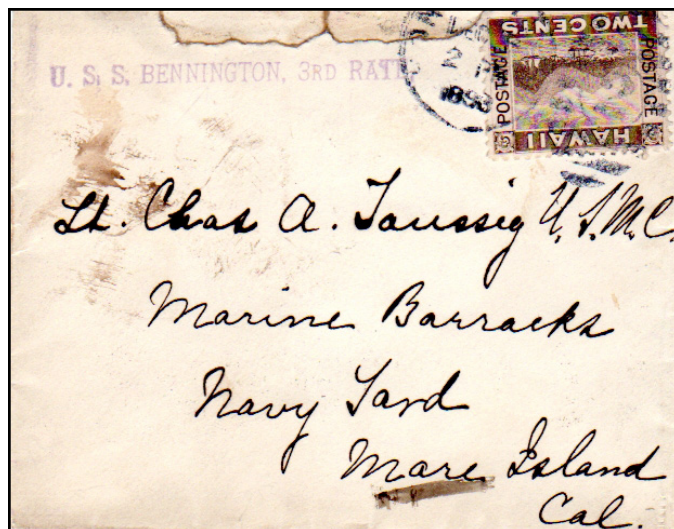 U. S. S. BENNINGTON, 3RD RATE.
TWO CENTS
POSTAGE
POSTAGE
HAWAII
Lt. Chas A. Taussig U.S.M.C.
Marine Barracks
Navy Yard
Mare Island
Cal.